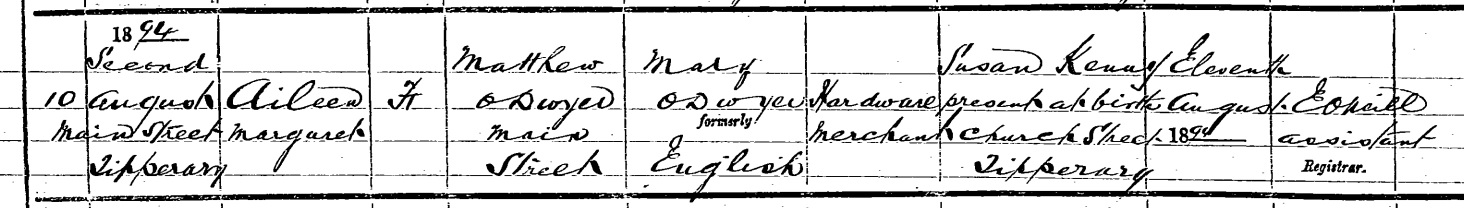 1894
Second Matthew Mary Susan Kenny Eleventh
10 August Aileen F O Dwyer O Dwyer Hardware present at birth August EONeill
formerly
Main Street Margaret Main Merchant Church Street 1894 assistant
Tipperary Street English Tipperary Registrar.